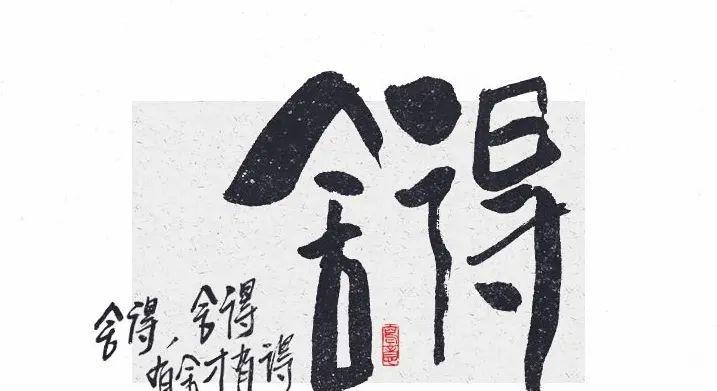 舍得
舍得，舍得
有舍才有得